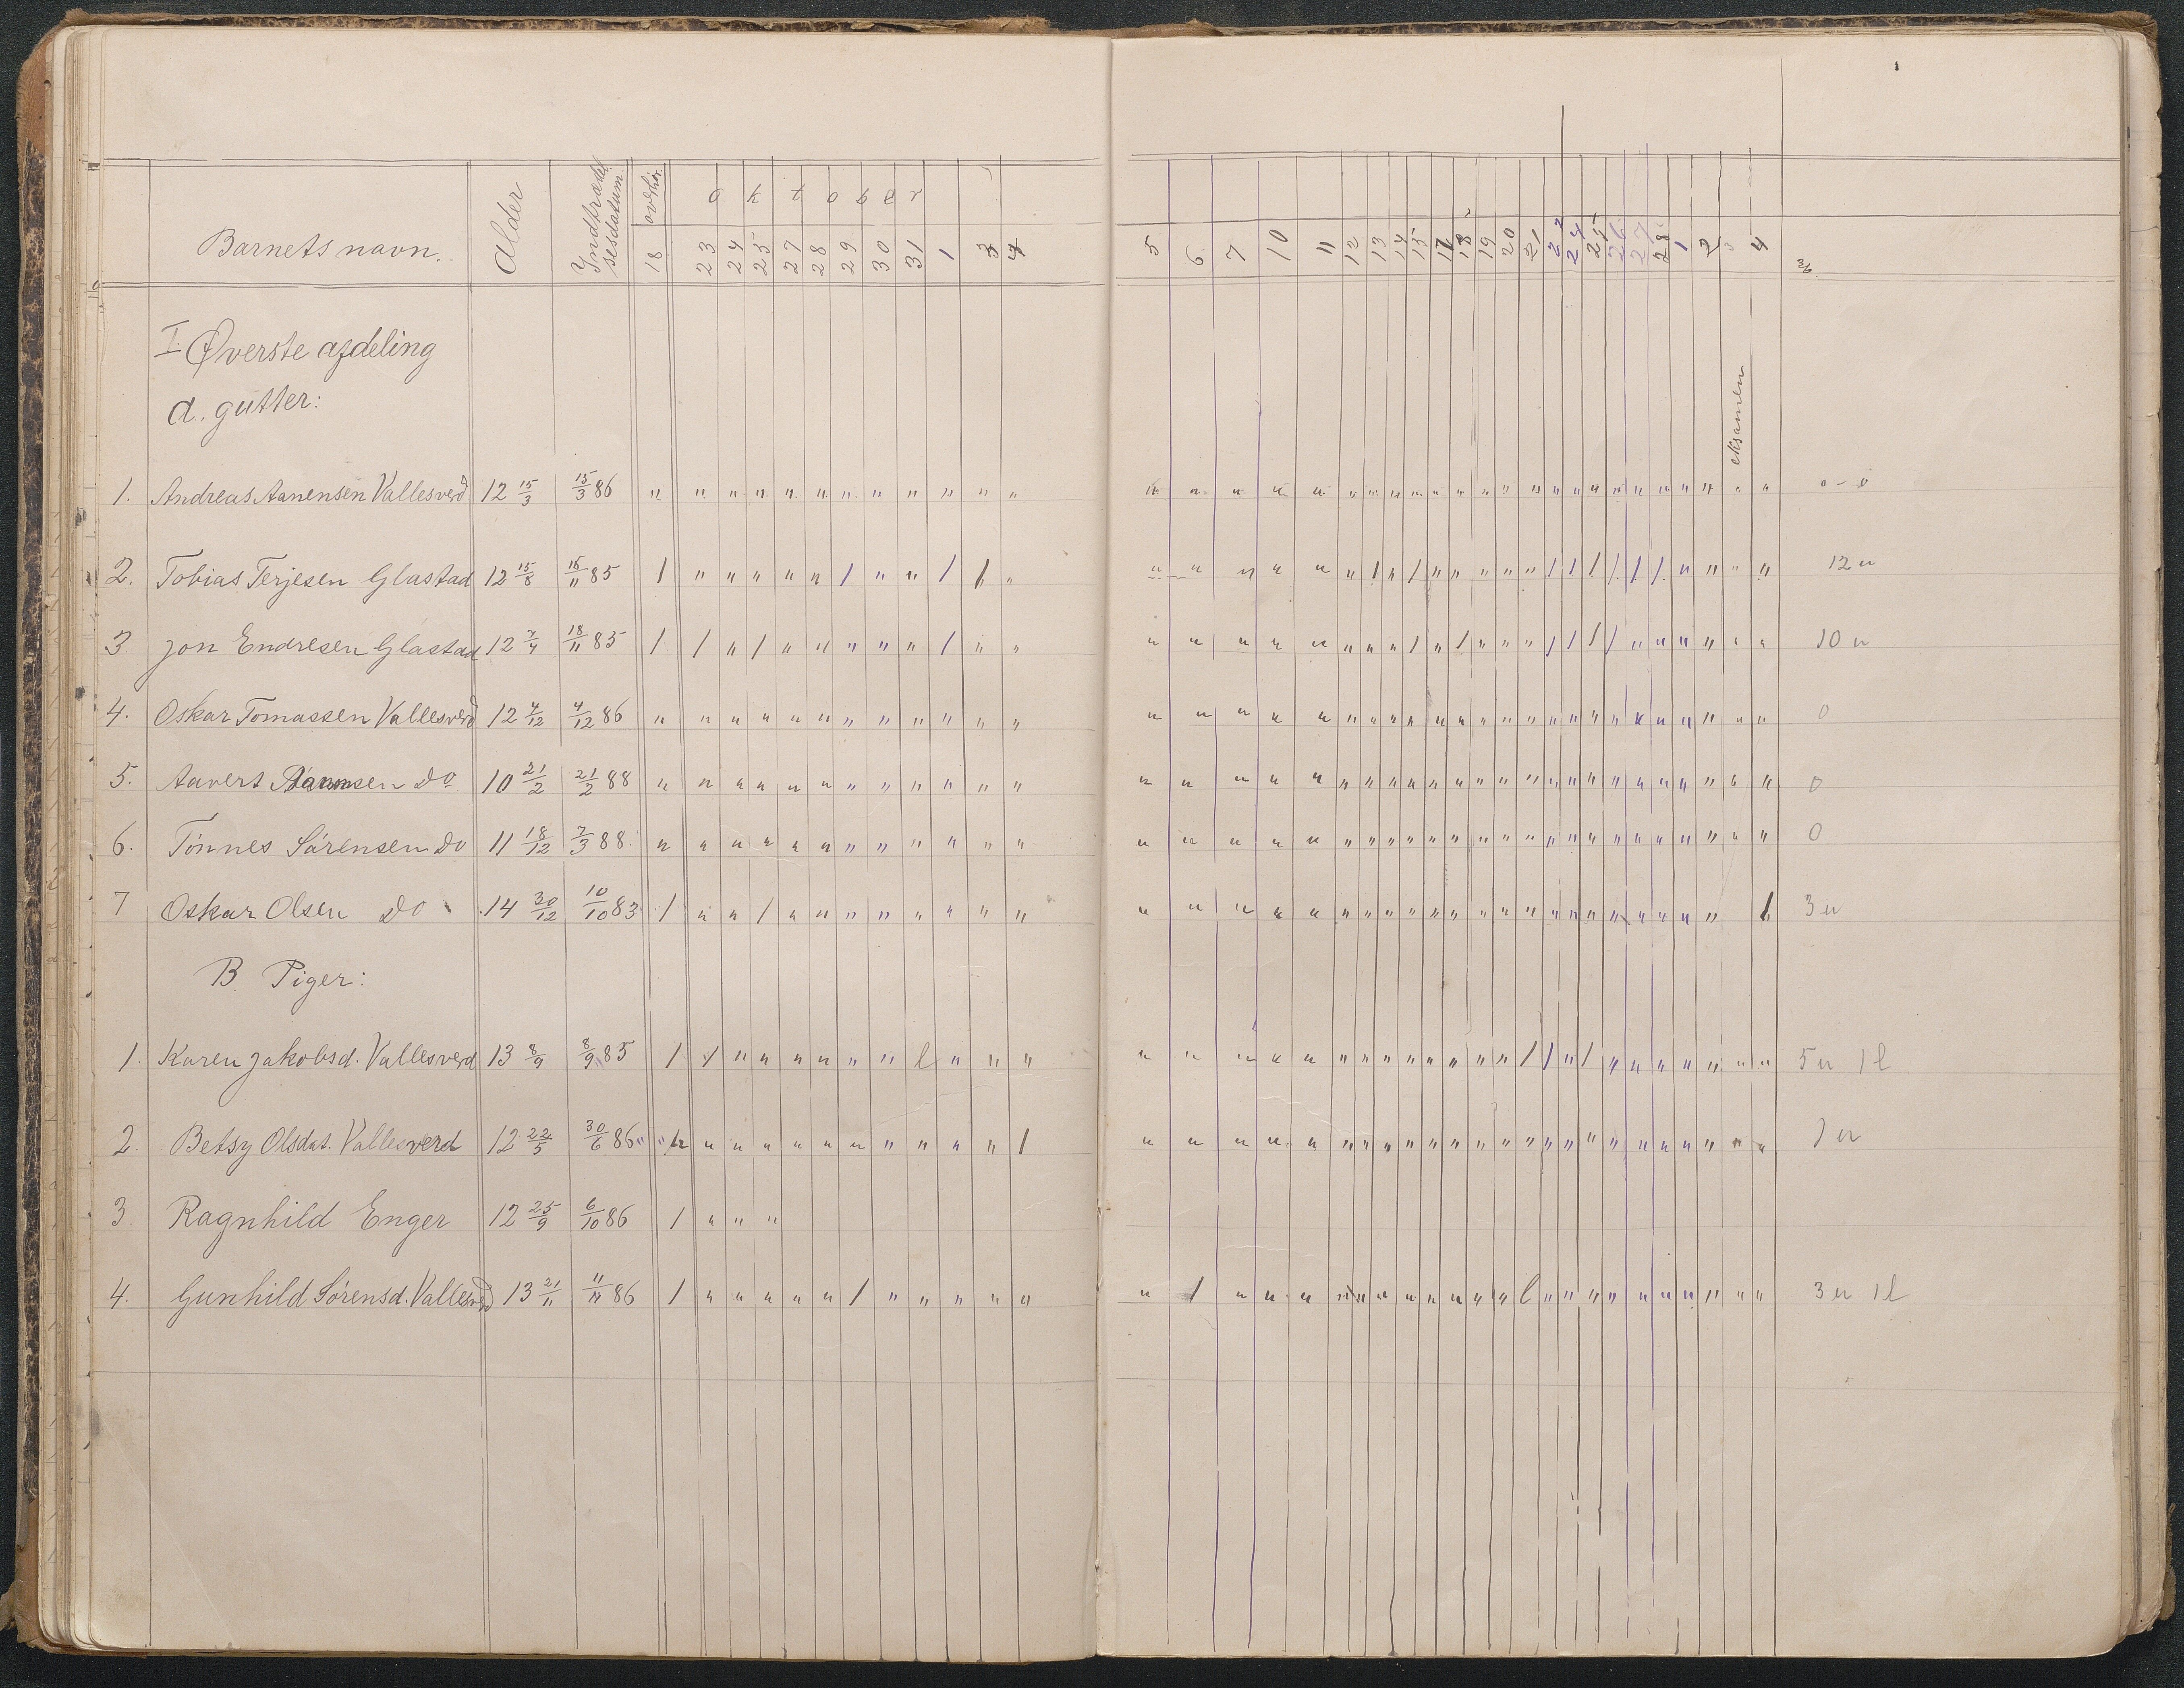 Barnets navn. Alder Indtrædel sesdatum overhør. 18 oktober 23 24 25 27 28 29 30 31 1 3 4 5 6 7 10 11 12 13 14 15 17 18 19 20 21 22 24 25 26 27 28 1 2 3 4
I. Øverste afdeling
a. gutter:
eksamen
1. Andreas Aanensen Vallesverd 12 15/3 15/3 86 " " " " " " " " " " " " " " " " " " " " " " " " " " " " " " " " " " " " 0 - 0
2. Tobias Terjesen Glastad 12 15/8 16/11 85 / " " " " " / " " / / " " " " " " " / " / " " " " " / / / / / / / " " " " 12 u
3. Jon Endresen Glastad 12 7/4 18/11 85 / / " / " " " " " / " " " " " " " " " " / " / " " " / / / / " " " " " " 10 u
4. Oskar Tomassen Vallesverd 12 4/12 4/12 86 " " " " " " " " " " " " " " " " " " " " " " " " " " " " " " " " " " " " 0
5. Aavert do 10 21/2 21/2 88 " " " " " " " " " " " " " " " " " " " " " " " " " " " " " " " " " " " " 0
6. Tønnes Sørensen do 11 18/12 7/3 88. " " " " " " " " " " " " " " " " " " " " " " " " " " " " " " " " " " " " 0
7 Oskar Olsen do 14 30/12 10/10 83 / " " / " " " " " " " " " " " " " " " " " " " " " " " " " " " " " " " / 3 u
B. Piger:
1. Karen Jakobsd. Vallesverd 13 8/9 8/9 85 / / " " " " " " l " " " " " " " " " " " " " " " " " / / " / " " " " " " " 5 u 1 l
2. Betsy Olsdat. Vallesverd 12 22/5 30/6 86 " " " " " " " " " " " " / " " " " " " " " " " " " " " " " " " " " " " " " 1 u
3. Ragnhild Enger 12 25/9 6/10 86 / " " "
4. Gunhild Sørensd. Vallesverd 13 21/11 11/11 86 / " " " " " / " " " " " " / " " " " " " " " " " " l " " " " " " " " " " 3 u 1 l